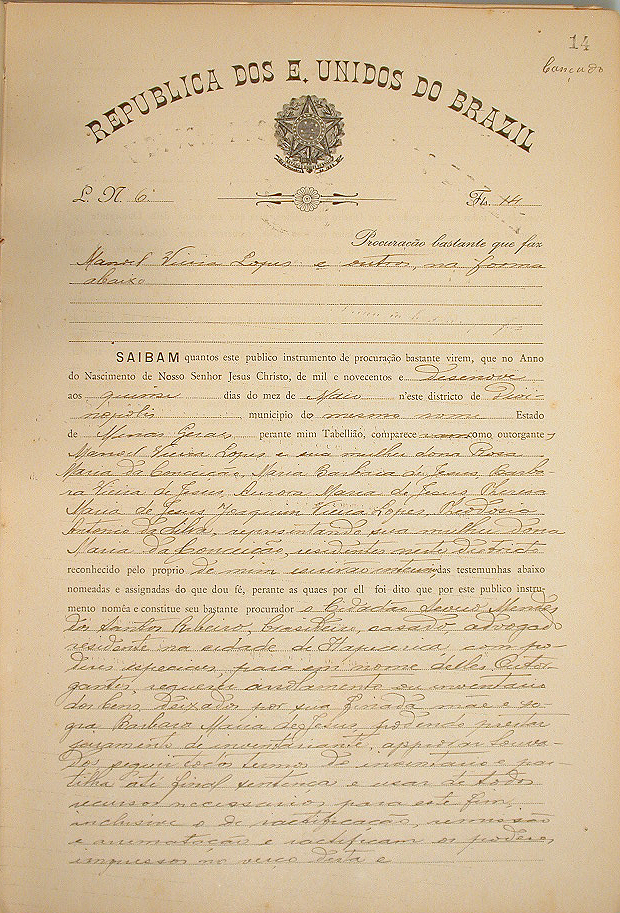 14
Cançado
REPUBLICA DOS E. UNIDOS DO BRAZIL
L. N. 6 Fls. 14
Procuração bastante que faz
Manoel Vieira Lopes e outros, na forma
abaixo
SAIBAM quantos este publico instrumento de procuração bastante virem, que no Anno
do Nascimento de Nosso Senhor Jesus Christo, de mil e novecentos e desenove
aos quinse dias do mez de Maio n'este districto de Divi-
nopolis municipio do mesmo nome Estado
de Minas Geraes perante mim Tabellião, comparece ram como outorgantes
Manoel Vieira Lopes e sua mulher dona Rosa
Maria da Conceição, Maria Barbara de Jesus, Barba-
ra Vieira de Jesus, Aurora Maria de Jesus, Theresa
Maria de Jesus, Joaquim Vieira Lopes, Theodoro
Antonio da Silva, representando sua mulher dona
Maria da Conceição, residentes neste districto
reconhecido pelo proprio de mim escrivão das testemunhas abaixo
nomeadas e assignadas do que dou fé, perante as quaes por ell foi dito que por este publico instru-
mento nomêa e constitue seu bastante procurador o Cidadão Severo Mendes
dos Santos Ribeiro, brasileiro, casado, advogado
residente na cidade de Itapecerica, com po-
deres especiaes, para em nome delles Outor-
gantes, requerer arrolamento ou inventario
dos bens deixados por sua finada mãe e so-
gra Barbara Maria de Jesus, podendo prestar
juramento de inventariante, approvar louva-
dos, seguir todos termos de inventario e par-
tilha até final sentença e usar de todos
recursos necessarios para este fim,
inclusive o de ractificação, remissão
e arrematação e ractificam os poderes
impressos no verso desta e